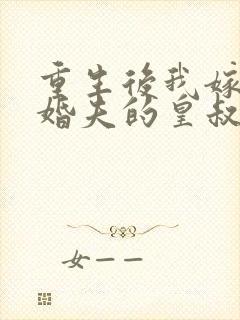 重生後我嫁
婚夫的皇叔
女——